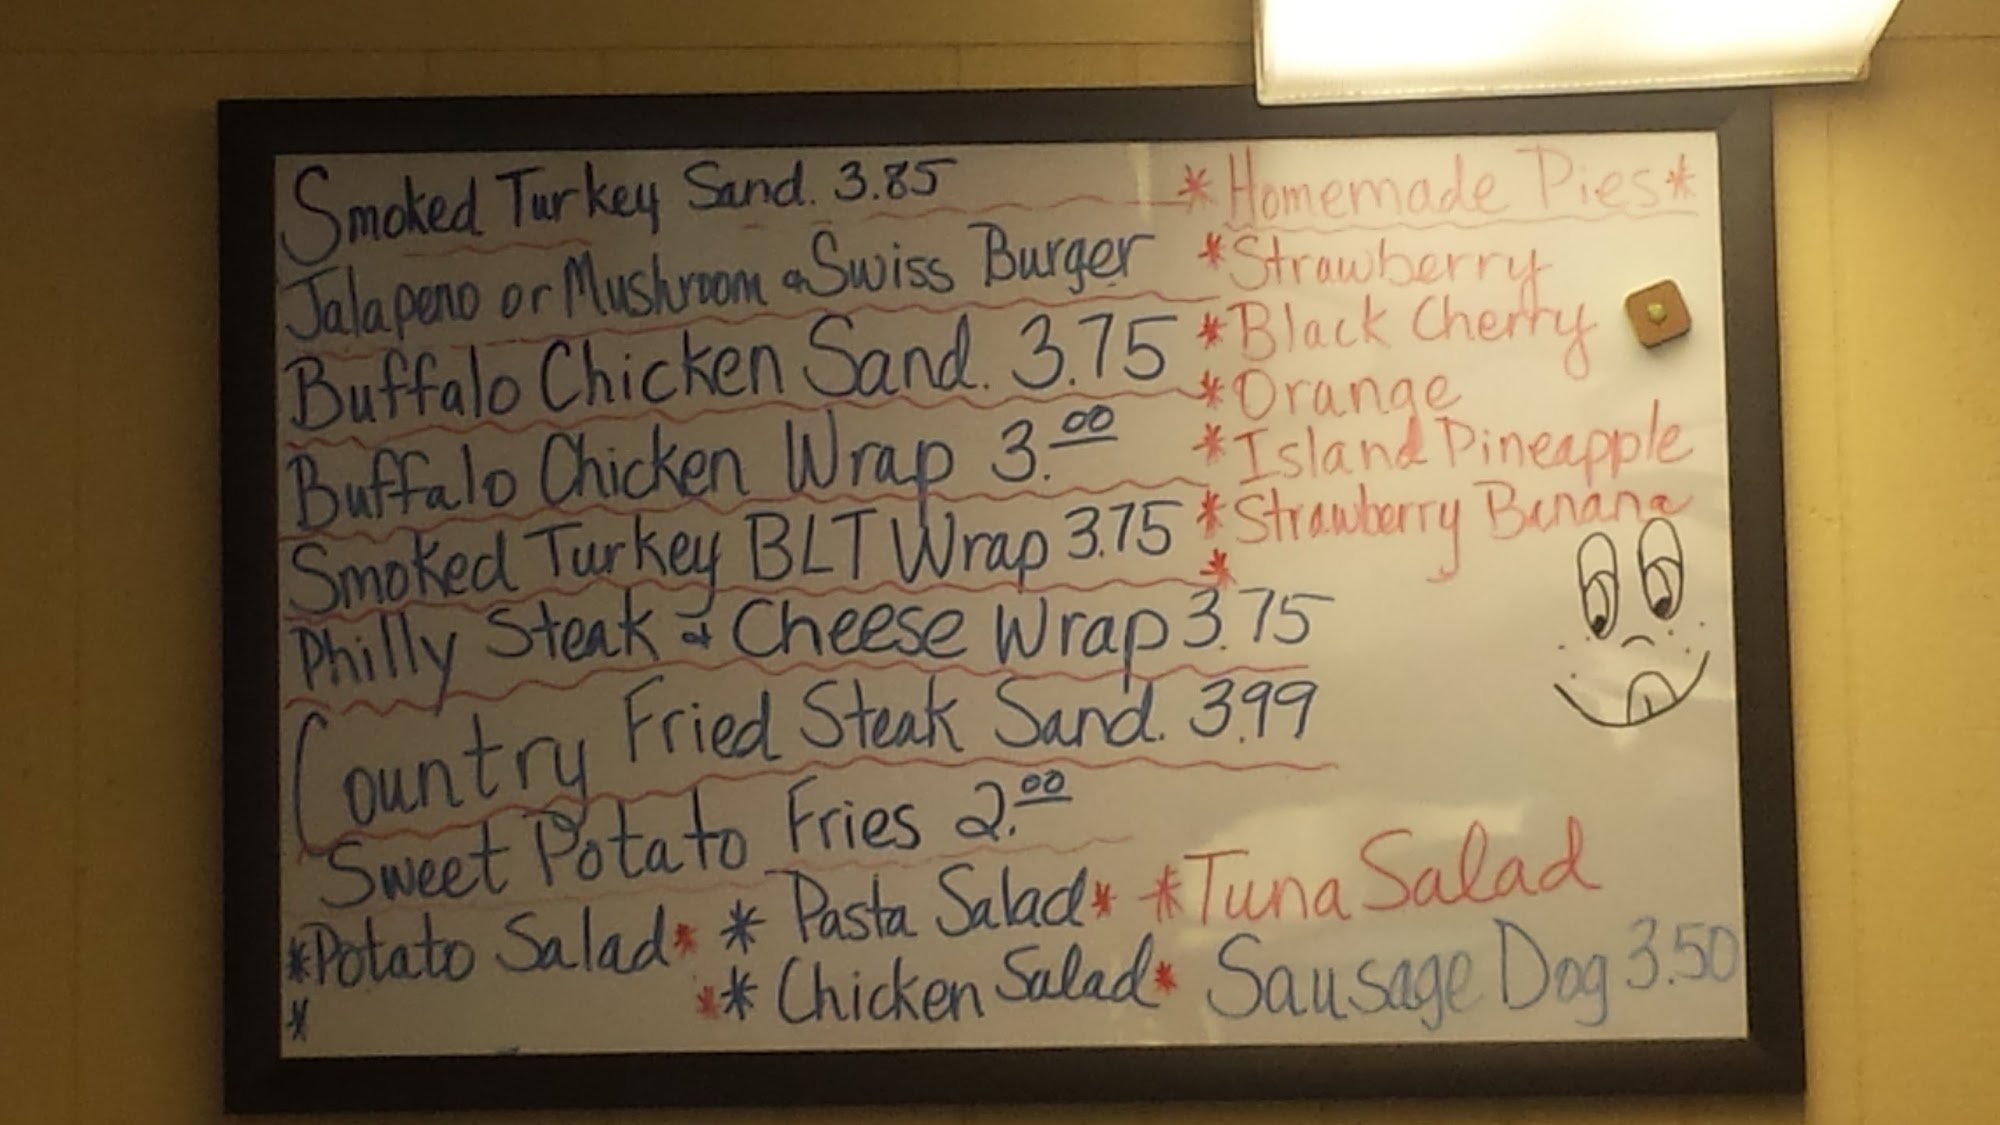 Smoked Turkey Sand. 3.85
Jalapeno or Mushroom & Swiss Burger
Buffalo Chicken Sand. 3.75
Buffalo Chicken Wrap 3.00
Smoked Turkey BLT Wrap 3.75
Philly Steak & Cheese Wrap 3.75
Country Fried Steak Sand. 3.99
Sweet Potato Fries 2.00
*Potato Salad* * Pasta Salad* *Tuna Salad
** Chicken Salad* Sausage Dog 3.50
*
*Homemade Pies*
*Strawberry
*Black Cherry
*Orange
*Island Pineapple
*Strawberry Banana
*